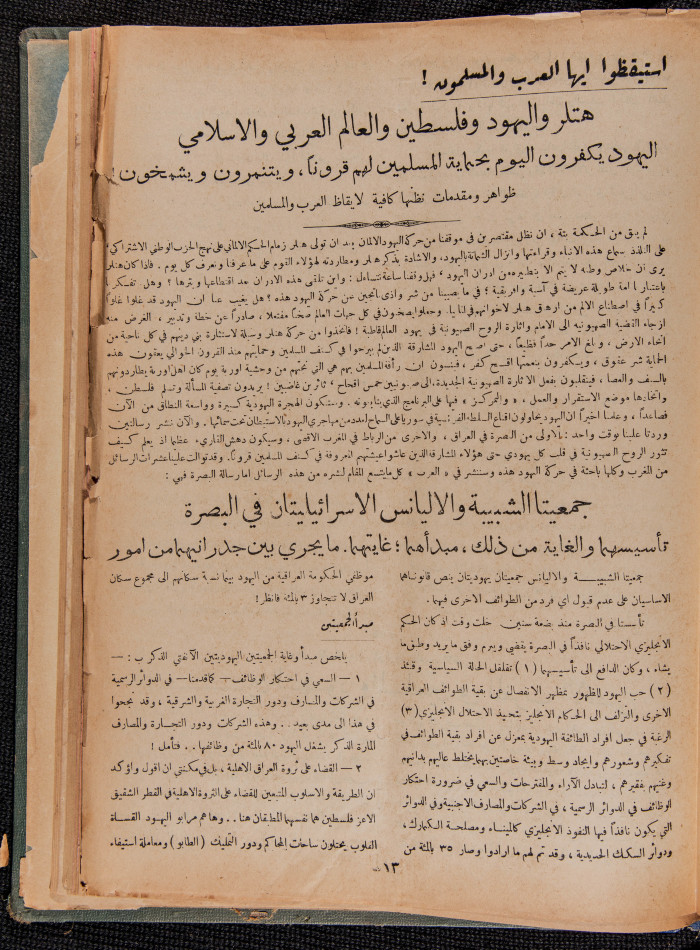 استيقظوا ايها العرب والمسلمون !
هتلر واليهود وفلسطين والعالم العربي والاسلامي
اليهود يكفرون اليوم بحماية المسلمين لهم قرونا ، ويتنمرون ويشمخون !
ظواهر ومقدمات نظنها كافية لايقاظ العرب والمسلمين
لم يبق من الحكمة بتة ، ان نظل مقتصرين في موقفنا من حركة اليهود الالمان بعد ان تولى هتلر زمام الحكم الالماني على نهج الحزب الوطني الاشتراكي ،
على التلذذ بسماع هذه الانباء وقراءتها وانزال الشماتة باليهود ، والاشادة بذكر هتلر ومطاردته لهؤلاء القوم على ما عرفنا ونعرف كل يوم . فاذا كان هتلر
يرى ان خلاص وطنه لا يتم الا بتطهيره من ادران اليهود ، فهل وقفنا ساعة نتساءل : واين تلقى هذه الادران بعد اقتطاعها وبترها ؟ وهل تفسكر
باعتبار امة طويلة عريضة في آسية وافريقية ؟ في ما يصيبنا من شر واذى ناتجين عن حركة اليهود هذه ؟ هل يغيب عنا ان اليهود قد غلوا غلواً
كبيراً في اصطناع الالم من ارهاق هتلر لاخوانهم في المانيا . وجعلوا يضجون في كل جهات العالم ضجاً مفتعلا ، صادراً عن خطة وتدبير ، الغرض منه
ازجاء القضية الصهيونية الى الامام واثارة الروح الصهيونية في يهود العالم قاطبة ! فاتخذوا من حركة هتلر وسيلة لاستثارة بني دينهم في كل ناحية من
انحاء الارض ، وبلغ الامر حداً فظيعاً ، حتى اصبح اليهود المشارقة الذين لم يبرحوا في كنف المسلمين وحمايتهم منذ القرون الخوالي يعقون هذه
الحماية شر عقوق ، ويكفرون بنعمتها اقبح كفر ، فينسون ان رأفة المسلمين بهم هي التي نجتهم من وحشية اوربة يوم كان اهل اوربة يطاردونهم
بالسيف والعصا ، فينقلبون بفعل الاثارة الصهيونية الجديدة، الى صهيونيين خمس اقحاح ، ثائرين غاضبين ! يريدون تصفية المسألة وتدلى فلسطين ،
واتخاذها موضع الاستقرار والعمل ، « والتمركز » فيها على البرنامج الذي يتابعونه . وستكون الهجرة اليهودية كبيرة وواسعة النطاق من الآن
فصاعداً ، وعلمنا اخيراً ان اليهود يحاولون اقناع السلطة الفرنسية في سوريا على السماح لعدد من مهاجري اليهود بالاستيطان تحت سمائها . والآن ننشر رسالتين
وردتا علينا بوقت واحد : الاولى من البصرة في العراق ، والاخرى من الرباط في المغرب الاقصى ، وسيكون دهش القارىء عظيما اذ يعلم كيف
تثور الروح الصهيونية في قلب كل يهودي حتى هؤلاء المشارقة الذين عاشوا عيشتهم المعروفة في كنف المسلمين قرونا . وقد توالت علينا عشرات الرسائل
من الغرب وكلها باحثة في حركة اليهود هذه وسننشر في « العرب » كل ما يتسع المقام لنشره من هذه الرسائل اما رسالة البصرة فهي :
جمعيتا الشبيبة والاليانس الاسرائيليتان في البصرة
تأسيسهما والغاية من ذلك ، مبدأهما ؛ غايتهما . ما يجري بين جدرانيهما من امور
جمعيتا الشبيبـة والاليانس جمعيتان يهوديتان ينص قانوناهما
الاساسيان على عدم قبول اي فرد من الطوائف الاخرى فيهما .
تأسستا في البصرة منذ بضعة سنين خلت وقت اذ كان الحكم
الانجليزي الاحتلالي نافذاً في البصرة يقضي ويبرم وفق ما يريد وطبق ما
يشاء ، وكان الدافع الى تأسيسهما ( ١ ) تقلقل الحالة السياسية وقتئذ
( ٢ ) حب اليهود للظهور بمظهر الانفصال عن بقية الطوائف العراقية
الاخرى والتزلف الى الحكام الانجليز بتحبيذ الاحتلال الانجليزي (٣)
الرغبة في جعل افراد الطائفة اليهودية بمعزل عن افراد بقية الطوائف في
تفكيرهم وشعورهم وايجاد وسط وبيئة خاصتين بهما يختلط عاليهم بدانيهم
وغنيهم بفقيرهم ، لتبادل الآراء والمقترحات والسعي في ضرورة احتكار
الوظائف في الدوائر الرسمية ، في الشركات والمصارف الاجنبية وفي الدوائر
التي يكون نافذاً فيها النفوذ الانجليزي كالمينـاء ومصلحـة الـكمارك ،
ودوائر السكك الحديدية ، وقد تم لهم ما ارادوا وصار ٣٥ بالمئة من
موظفي الحكومة العراقية من اليهود بينما نسبة سكانهم الى مجموع سكان
العراق لا تتجاوز ٣ بالمئة فانظر !
مبدأ الجمعيتين
يتلخص مبدأ وغاية الجمعيتين اليهوديتين الآنفتي الذكر بـ : —
١ — السعي في احتكار الوظائف — كما قدمنا — في الدوائر الرسمية
في الشركات والمصارف ودور التجارة الغربية والشرقية ، وقد نجحوا
في هذا الى مدى بعيد . . وهذه الشركات ودور التجـارة والمصارف
المارة الذكر يشغل اليهود ٨٠ بالمئة من وظائفها . . فتأمل !
٢ — القضاء على ثروة العراق الاهلية ، بل في مكنتي ان اقول واؤكد
ان الطريقة والاسلوب المتبعين للقضاء على الثروة الاهلية في القطر الشقيق
الاعز فلسطين هما نفسهما المطبقان هنا . . وها هم مرابو اليهود القسـاة
القلوب يحتلون ساحات المحاكم ودور التمليك ( الطابو ) ومعاملة استيفاء
١٣